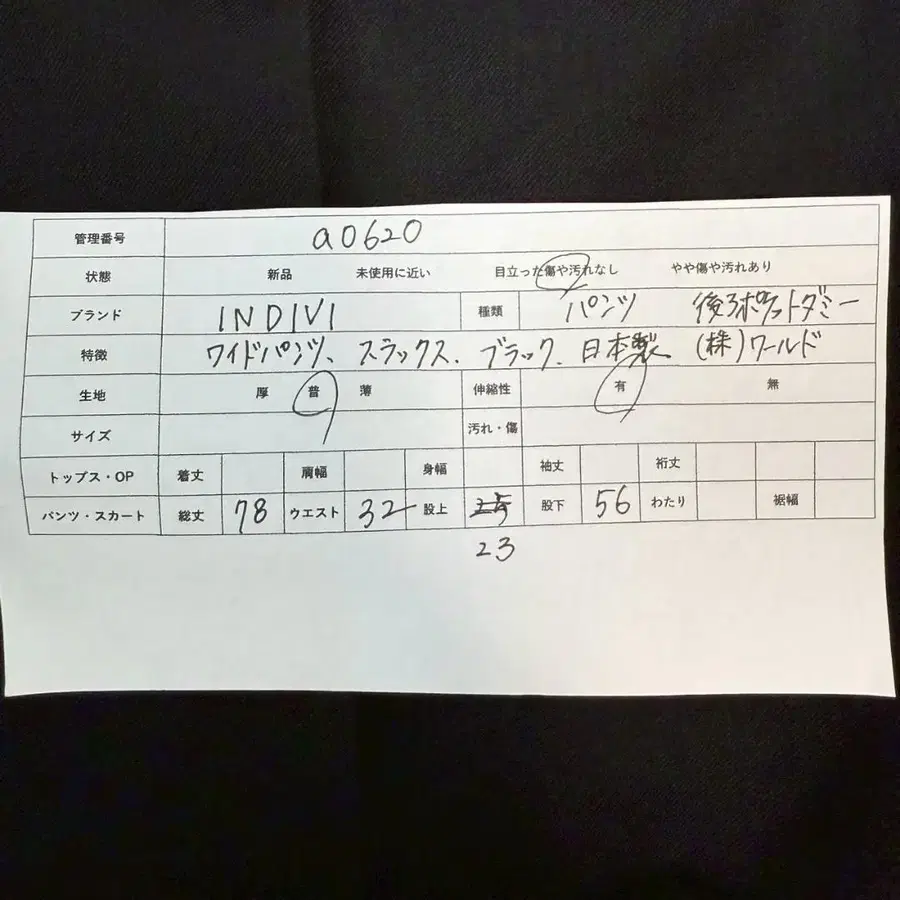 管理番号 a0620
状態 新品 未使用に近い 目立った傷や汚れなし やや傷や汚れあり
ブランド INDIVI 種類 パンツ 後ろポケットダミー
特徴 ワイドパンツ、スラックス、ブラック、日本製 (株)ワールド
生地 厚 普 薄 伸縮性 有 無
サイズ 汚れ・傷
トップス・OP 着丈 肩幅 身幅 袖丈 裄丈
パンツ・スカート 総丈 78 ウエスト 32 股上 股下 56 わたり 裾幅
23